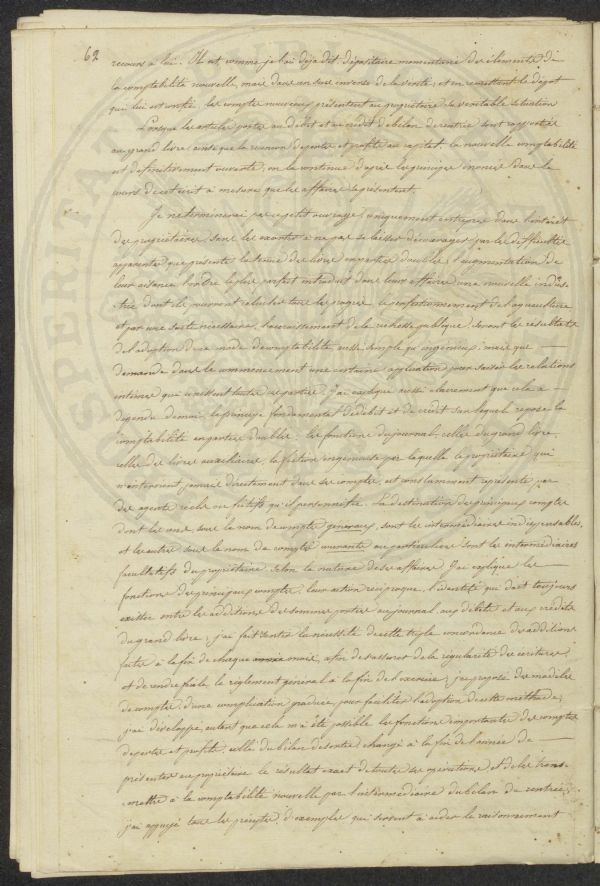 62
recours à lui. Il est comme je l'ai déjà dit, dépositaire momentané des éléments de
la comptabilité nouvelle, mais dans un sens inverse de la vérité; et en remettant le dépôt
qui lui est confié, les comptes nouveaux présentent au propriétaire la véritable situation
Lorsque les articles portés au débit et au crédit du bilan de rentrée sont rapportés
au grand livre, ainsi que la réunion des pertes et profits au capital, la nouvelle comptabilité
est définitivement ouverte; on la continue d'après les principes énoncés dans le
cours de cet écrit à mesure que les affaires se présentent.
Je ne terminerai pas ce petit ouvrage, uniquement entrepris dans l'intérêt
des propriétaires, sans les exhorter à ne pas se laisser décourager par les difficultés
apparentes que présente la tenue des livres en parties doubles, l'augmentation de
leur aisance, l'ordre le plus parfait introduit dans leurs affaires une nouvelle indus-
-trie dont ils pourront calculer tous les progrès, le perfectionnement de l'agriculture
et par une suite nécessaire, l'accroissement de la richesse publique, seront les résultats
de l'adoption d'un mode de comptabilité aussi simple qu'ingénieux, mais qui
demande dans le commencement une certaine application pour saisir les relations
intimes qui unissent toutes ses parties. J'ai expliqué aussi clairement que cela a
dépendu de moi, le principe fondamental de débit et de crédit sur lequel repose la
comptabilité en parties doubles; les fonctions du journal, celles du grand livre,
celles des livres auxiliaires, la fiction ingénieuse par laquelle le propriétaire qui
n'intervient jamais directement dans ses comptes, est constamment représenté par
des agents réels ou fictifs qu'il personnifie. La destination des principaux comptes
dont les uns, sous le nom de comptes généraux, sont les intermédiaires indispensables,
et les autres sous le nom de comptes courants ou particuliers sont les intermédiaires
facultatifs du propriétaire, selon la nature de ses affaires. J'ai expliqué les
fonctions des principaux comptes, leur action réciproque, l'identité qui doit toujours
exister entre les additions des sommes portées au journal, aux débits et aux crédits
du grand livre; j'ai fait sentir la nécessité de cette triple concordance d'additions
faites à la fin de chaque mois, afin de s'assurer de la régularité des écritures
et de rendre facile le règlement général à la fin de l'exercice; j'ai proposé des modèles
de comptes, d'une complication graduée, pour faciliter l'adoption de cette méthode;
j'ai développé, autant que cela m'a été possible les fonctions importantes des comptes
de pertes et profits; celles du bilan de sortie chargé à la fin de l'année de
présenter au propriétaire le résultat exact de toutes ses opérations et de les trans-
-mettre à la comptabilité nouvelle par l'intermédiaire du bilan de rentrée;
j'ai appuyé tous les préceptes d'exemples qui servent à aider le raisonnement